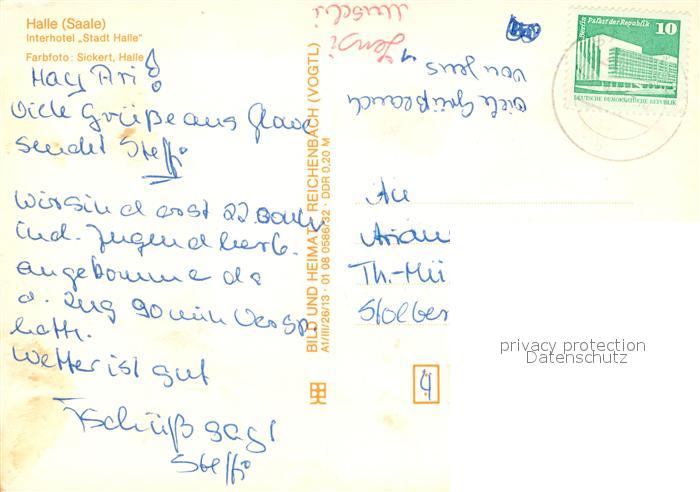 Halle (Saale)
Interhotel „Stadt Halle"
Farbfoto: Sickert, Halle
Hay Ari!
Viele Grüße aus
sendet Steffi
Wir sind erst 22.00 Uhr
in d. Jugendherb.
angekomme da
d. Zug 90 min Versp.
hatte.
Wetter ist gut
Tschüß sagt
Steffi
BILD UND HEIMAT REICHENBACH (VOGTL)
A1/III/26/13 · 01 08 0586/32 · DDR 0,20 M
Viele Grüße auch
von Jens
Berlin Palast der Republik 10
DEUTSCHE DEMOKRATISCHE REPUBLIK
An
Arian
Th.-Mü
Stolber
privacy protection
Datenschutz